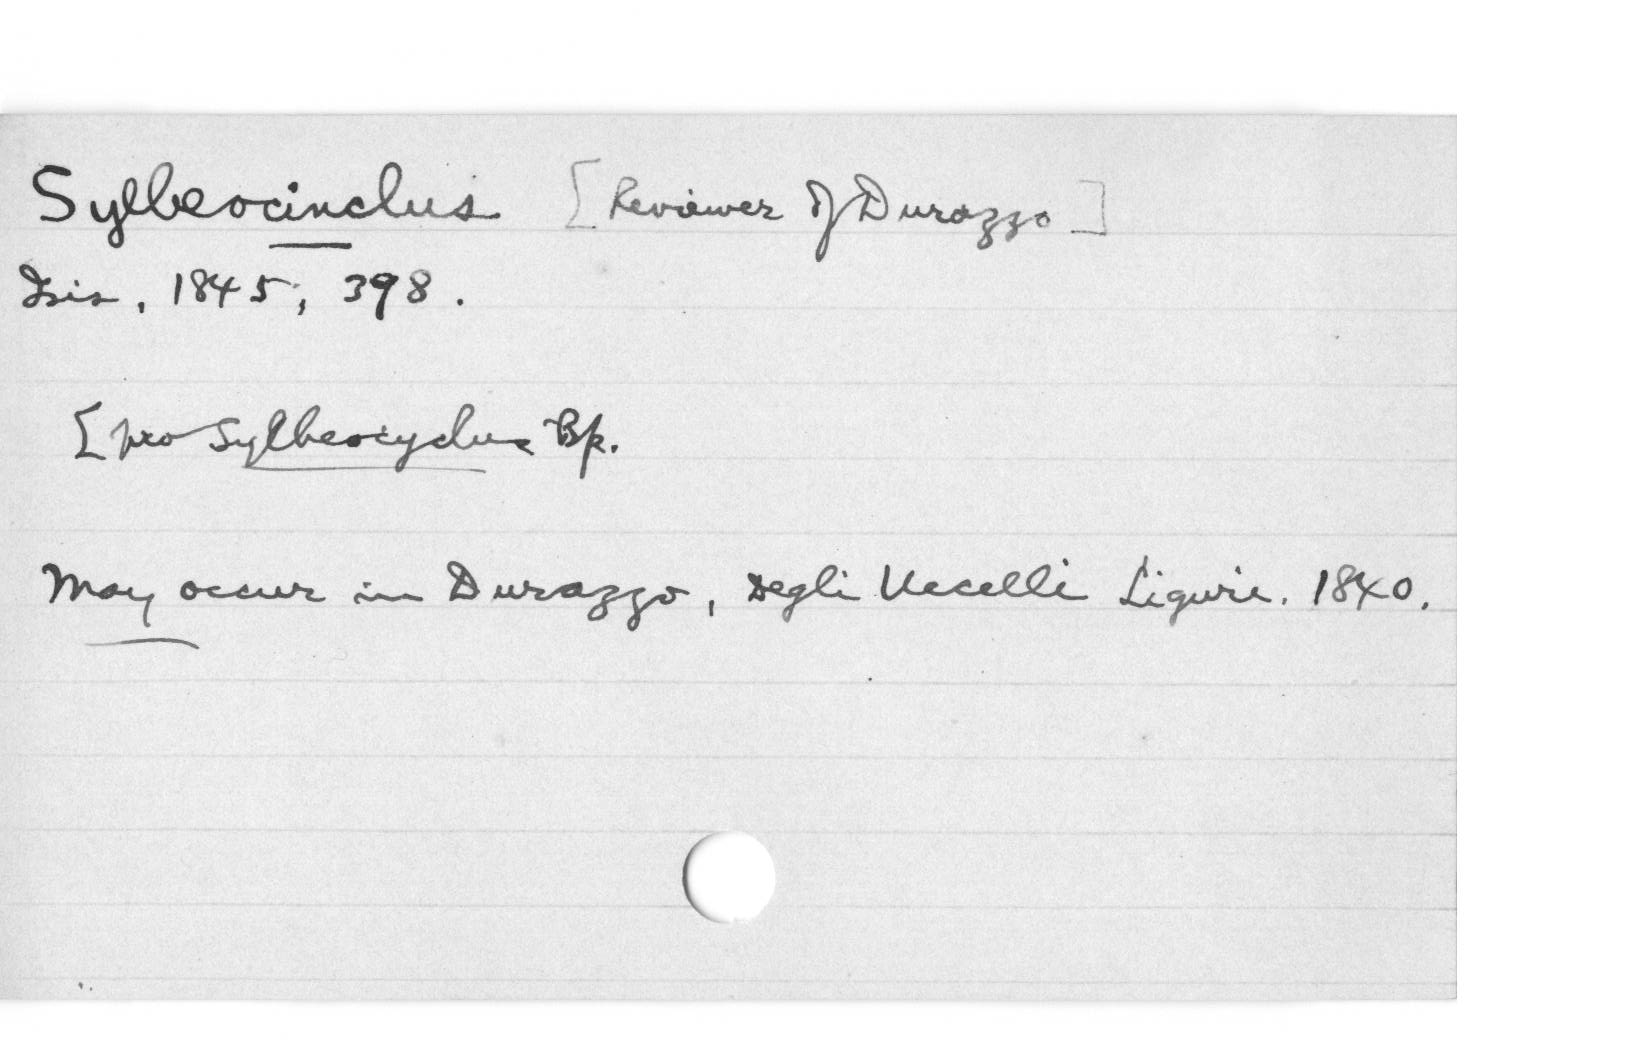 Sylbeocinclus [Reviewer of Durazzo]
Isis, 1845, 398.
[pro Sylbeocyclus Bp.
May occur in Durazzo, Degli Uccelli Liguri. 1840.